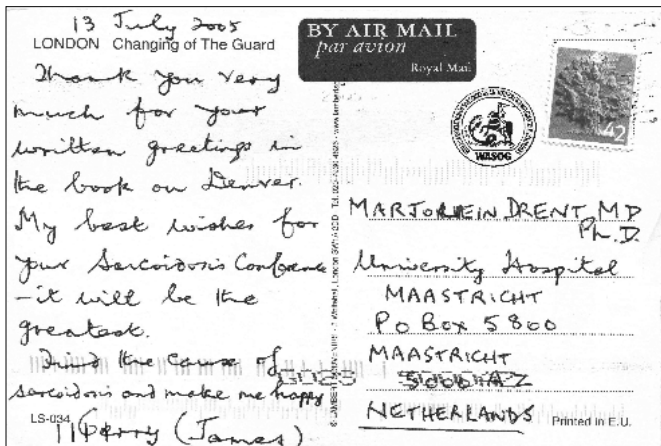 13 July 2005
LONDON Changing of The Guard
Thank you very
much for your
written greetings in
the book on Denver.
My best wishes for
your Sarcoidosis Conference
– it will be the
greatest.
Find the cause of
sarcoidosis and make me happy
LS-034
Gerry (James)
BY AIR MAIL
par avion
Royal Mail
WASOG
42
MARJOLEIN DRENT, MD
Ph.D.
University Hospital
MAASTRICHT
PO BOX 5800
MAASTRICHT
NETHERLANDS
Printed in E.U.